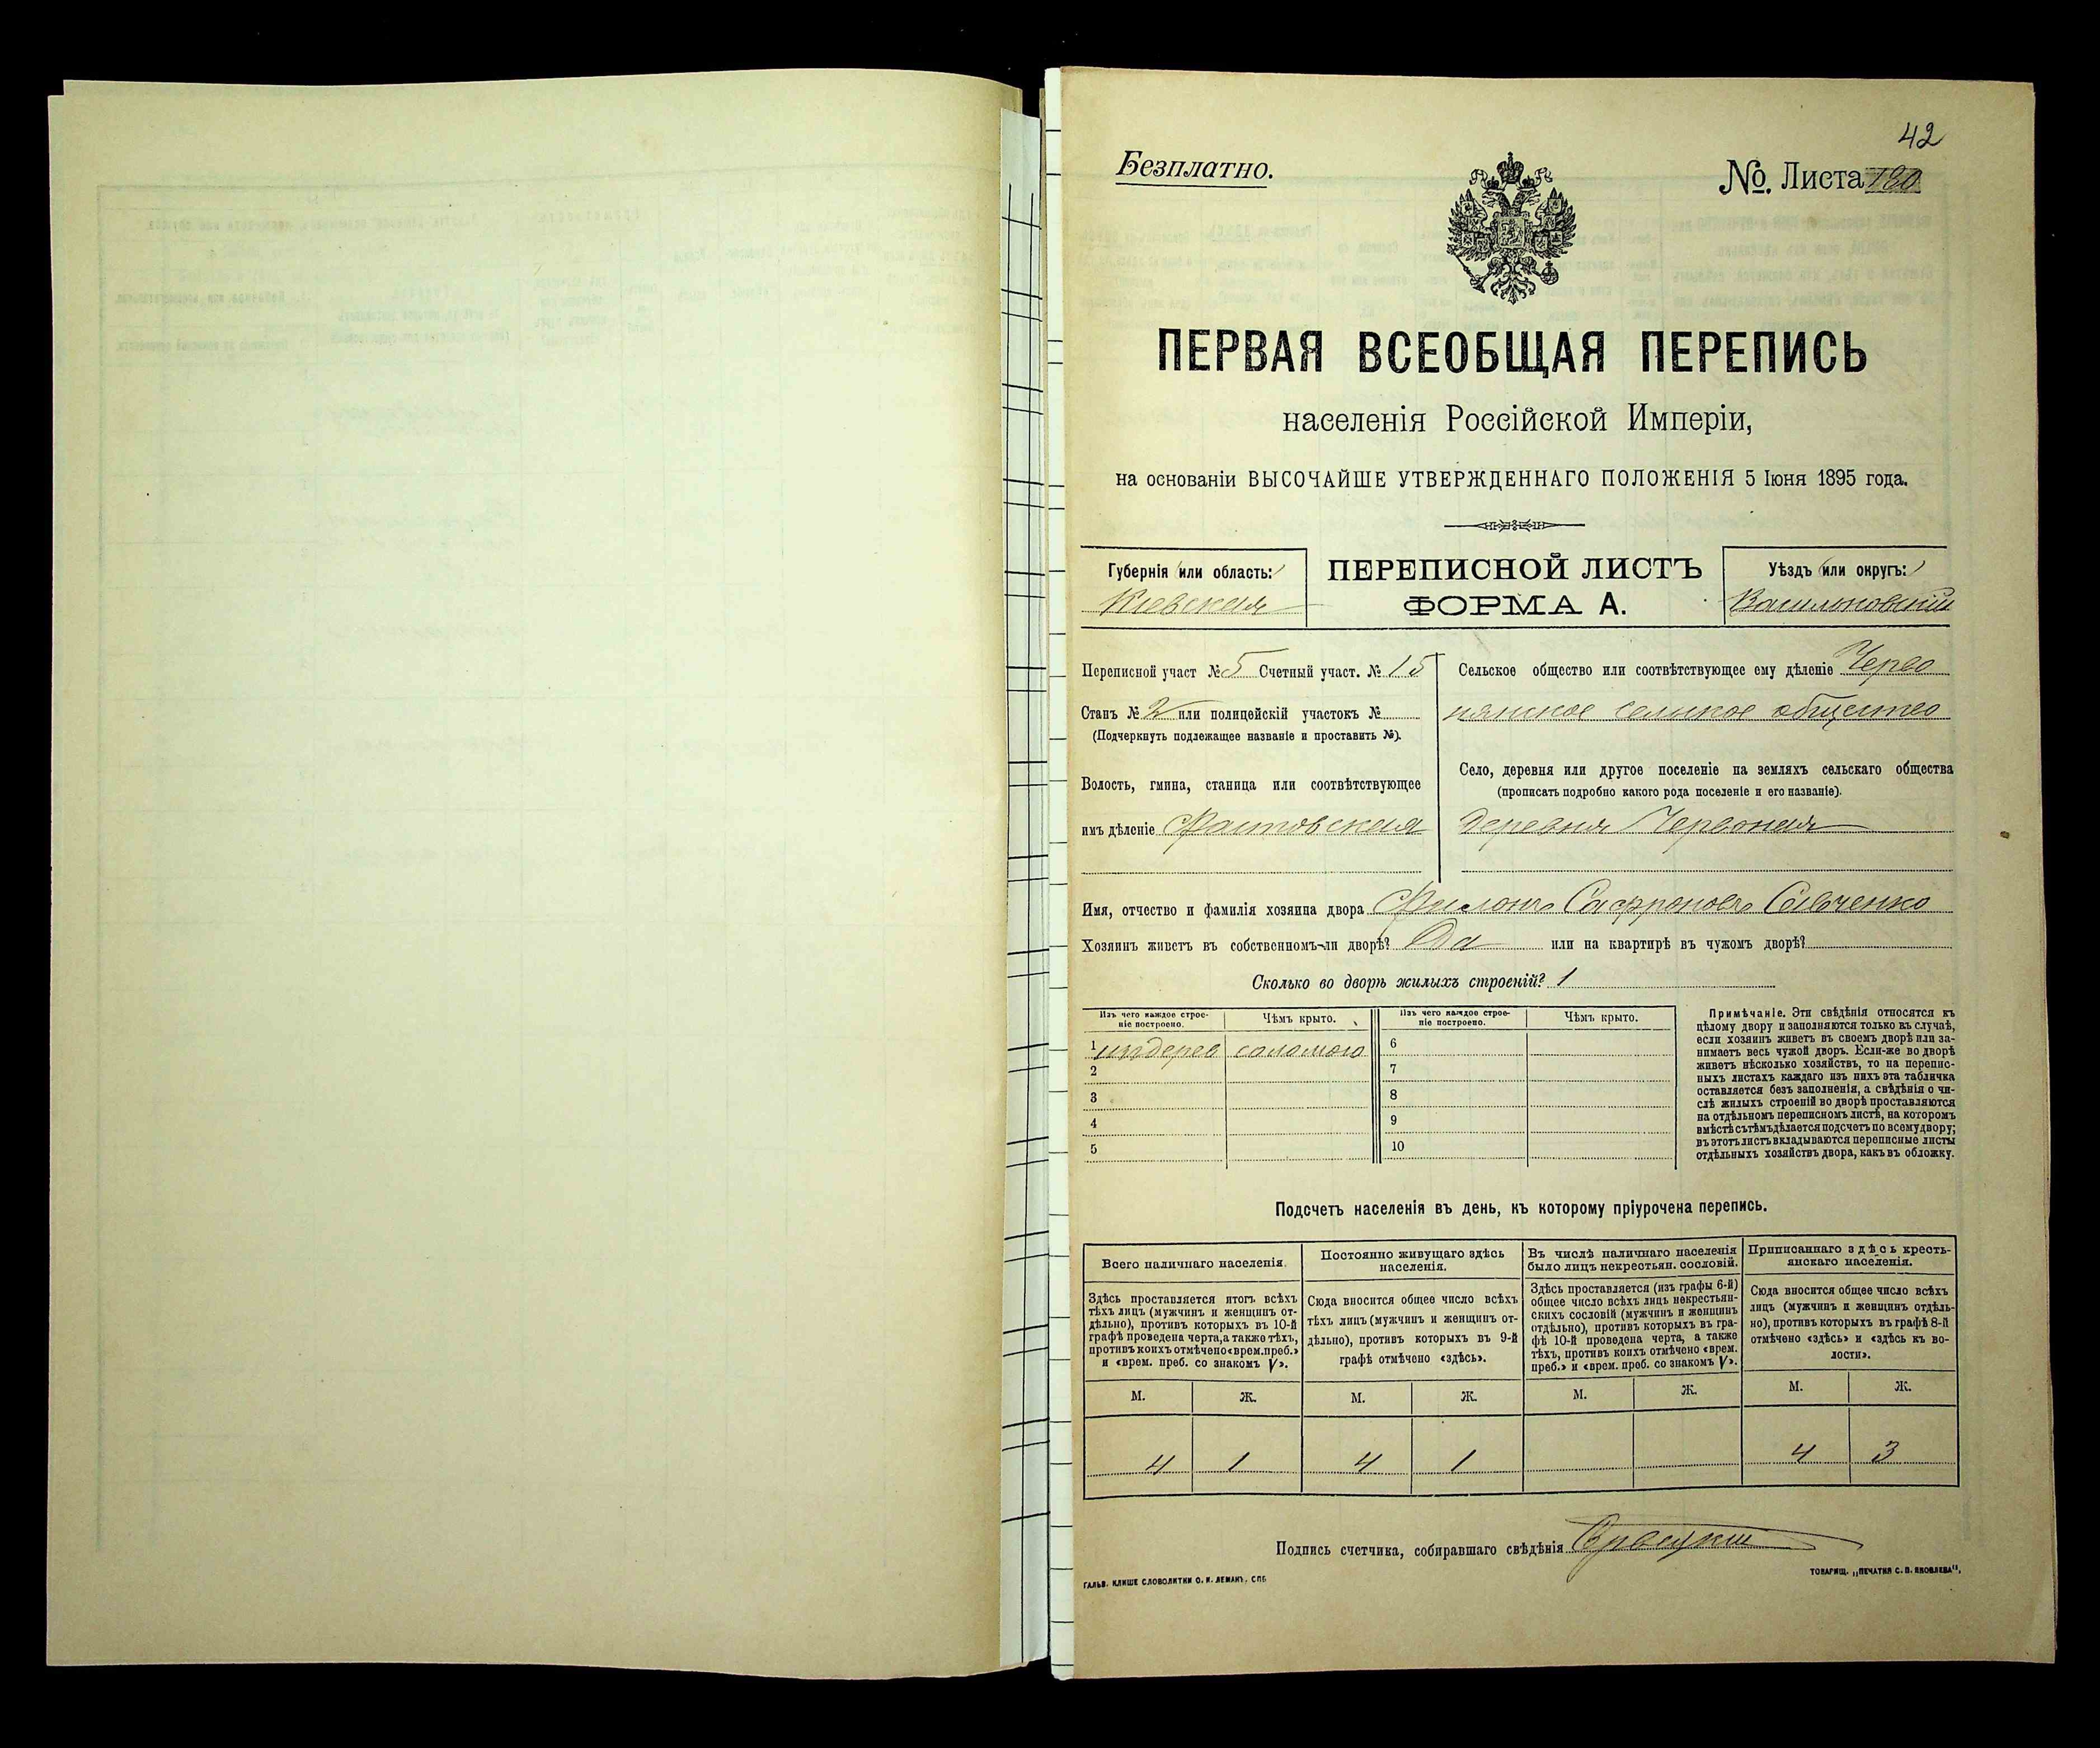 42
Безплатно.
№. Листа
ПЕРВАЯ ВСЕОБЩАЯ ПЕРЕПИСЬ
населенія Россійской Имперіи,
на основаніи ВЫСОЧАЙШЕ УТВЕРЖДЕННАГО ПОЛОЖЕНІЯ 5 Іюня 1895 года.
Губернія (или область:)
Кіевская
ПЕРЕПИСНОЙ ЛИСТЪ
ФОРМА А.
Уѣздъ (или округъ:)
Васильковскій
Переписной участ № 5 Счетный участ. № 15
Станъ № 2 или полицейскій участокъ №
(Подчеркнуть подлежащее названіе и проставить №).
Волость, гмина, станица или соотвѣтствующее
имъ дѣленіе Фастовская
Сельское общество или соотвѣтствующее ему дѣленіе Черво
нянское сельское общество
Село, деревня или другое поселеніе на земляхъ сельскаго общества
(прописать подробно какого рода поселеніе и его названіе).
деревня Червоная
Имя, отчество и фамилія хозяина двора Филонъ Сафроновъ Савченко
Хозяинъ живетъ въ собственномъ-ли дворѣ? Да или на квартирѣ въ чужомъ дворѣ?
Сколько во дворѣ жилыхъ строеній? 1
Изъ чего каждое строе-
ніе построено.
Чѣмъ крыто.
Изъ чего каждое строе-
ніе построено.
Чѣмъ крыто.
1 издерева соломою 6
2 7
3 8
4 9
5 10
Примѣчаніе. Эти свѣдѣнія относятся къ
цѣлому двору и заполняются только въ случаѣ,
если хозяинъ живетъ въ своемъ дворѣ или за-
нимаетъ весь чужой дворъ. Если-же во дворѣ
живетъ нѣсколько хозяйствъ, то на перепис-
ныхъ листахъ каждаго изъ нихъ эта табличка
оставляется безъ заполненія, а свѣдѣнія о чи-
слѣ жилыхъ строеній во дворѣ проставляются
на отдѣльномъ переписномъ листѣ, на которомъ
вмѣстѣ съ тѣмъ дѣлается подсчетъ по всему двору;
въ этотъ листъ вкладываются переписные листы
отдѣльныхъ хозяйствъ двора, какъ въ обложку.
Подсчетъ населенія въ день, къ которому пріурочена перепись.
Всего наличнаго населенія.
Здѣсь проставляется итогъ всѣхъ
тѣхъ лицъ (мужчинъ и женщинъ от-
дѣльно), противъ которыхъ въ 10-й
графѣ проведена черта, а также тѣхъ,
противъ коихъ отмѣчено «врем. преб.»
и «врем. преб. со знакомъ V».
Постоянно живущаго здѣсь
населенія.
Сюда вносится общее число всѣхъ
тѣхъ лицъ (мужчинъ и женщинъ от-
дѣльно), противъ которыхъ въ 9-й
графѣ отмѣчено «здѣсь».
Въ числѣ наличнаго населенія
было лицъ некрестьян. сословій.
Здѣсь проставляется (изъ графы 6-й)
общее число всѣхъ лицъ некрестьян-
скихъ сословій (мужчинъ и женщинъ
отдѣльно), противъ которыхъ въ гра-
фѣ 10-й проведена черта, а также
тѣхъ, противъ коихъ отмѣчено «врем.
преб.» и «врем. преб. со знакомъ V».
Приписаннаго здѣсь кресть-
янскаго населенія.
Сюда вносится общее число всѣхъ
лицъ (мужчинъ и женщинъ отдѣль-
но), противъ которыхъ въ графѣ 8-й
отмѣчено «здѣсь» и «здѣсь къ во-
лости».
М. Ж. М. Ж. М. Ж. М. Ж.
4 1 4 1 4 3
Подпись счетчика, собиравшаго свѣдѣнія
ГАЛЬВ. КЛИШЕ СЛОВОЛИТНИ О. И. ЛЕМАНЪ, СПб.
ТОВАРИЩ. „ПЕЧАТНЯ С. П. ЯКОВЛЕВА“.